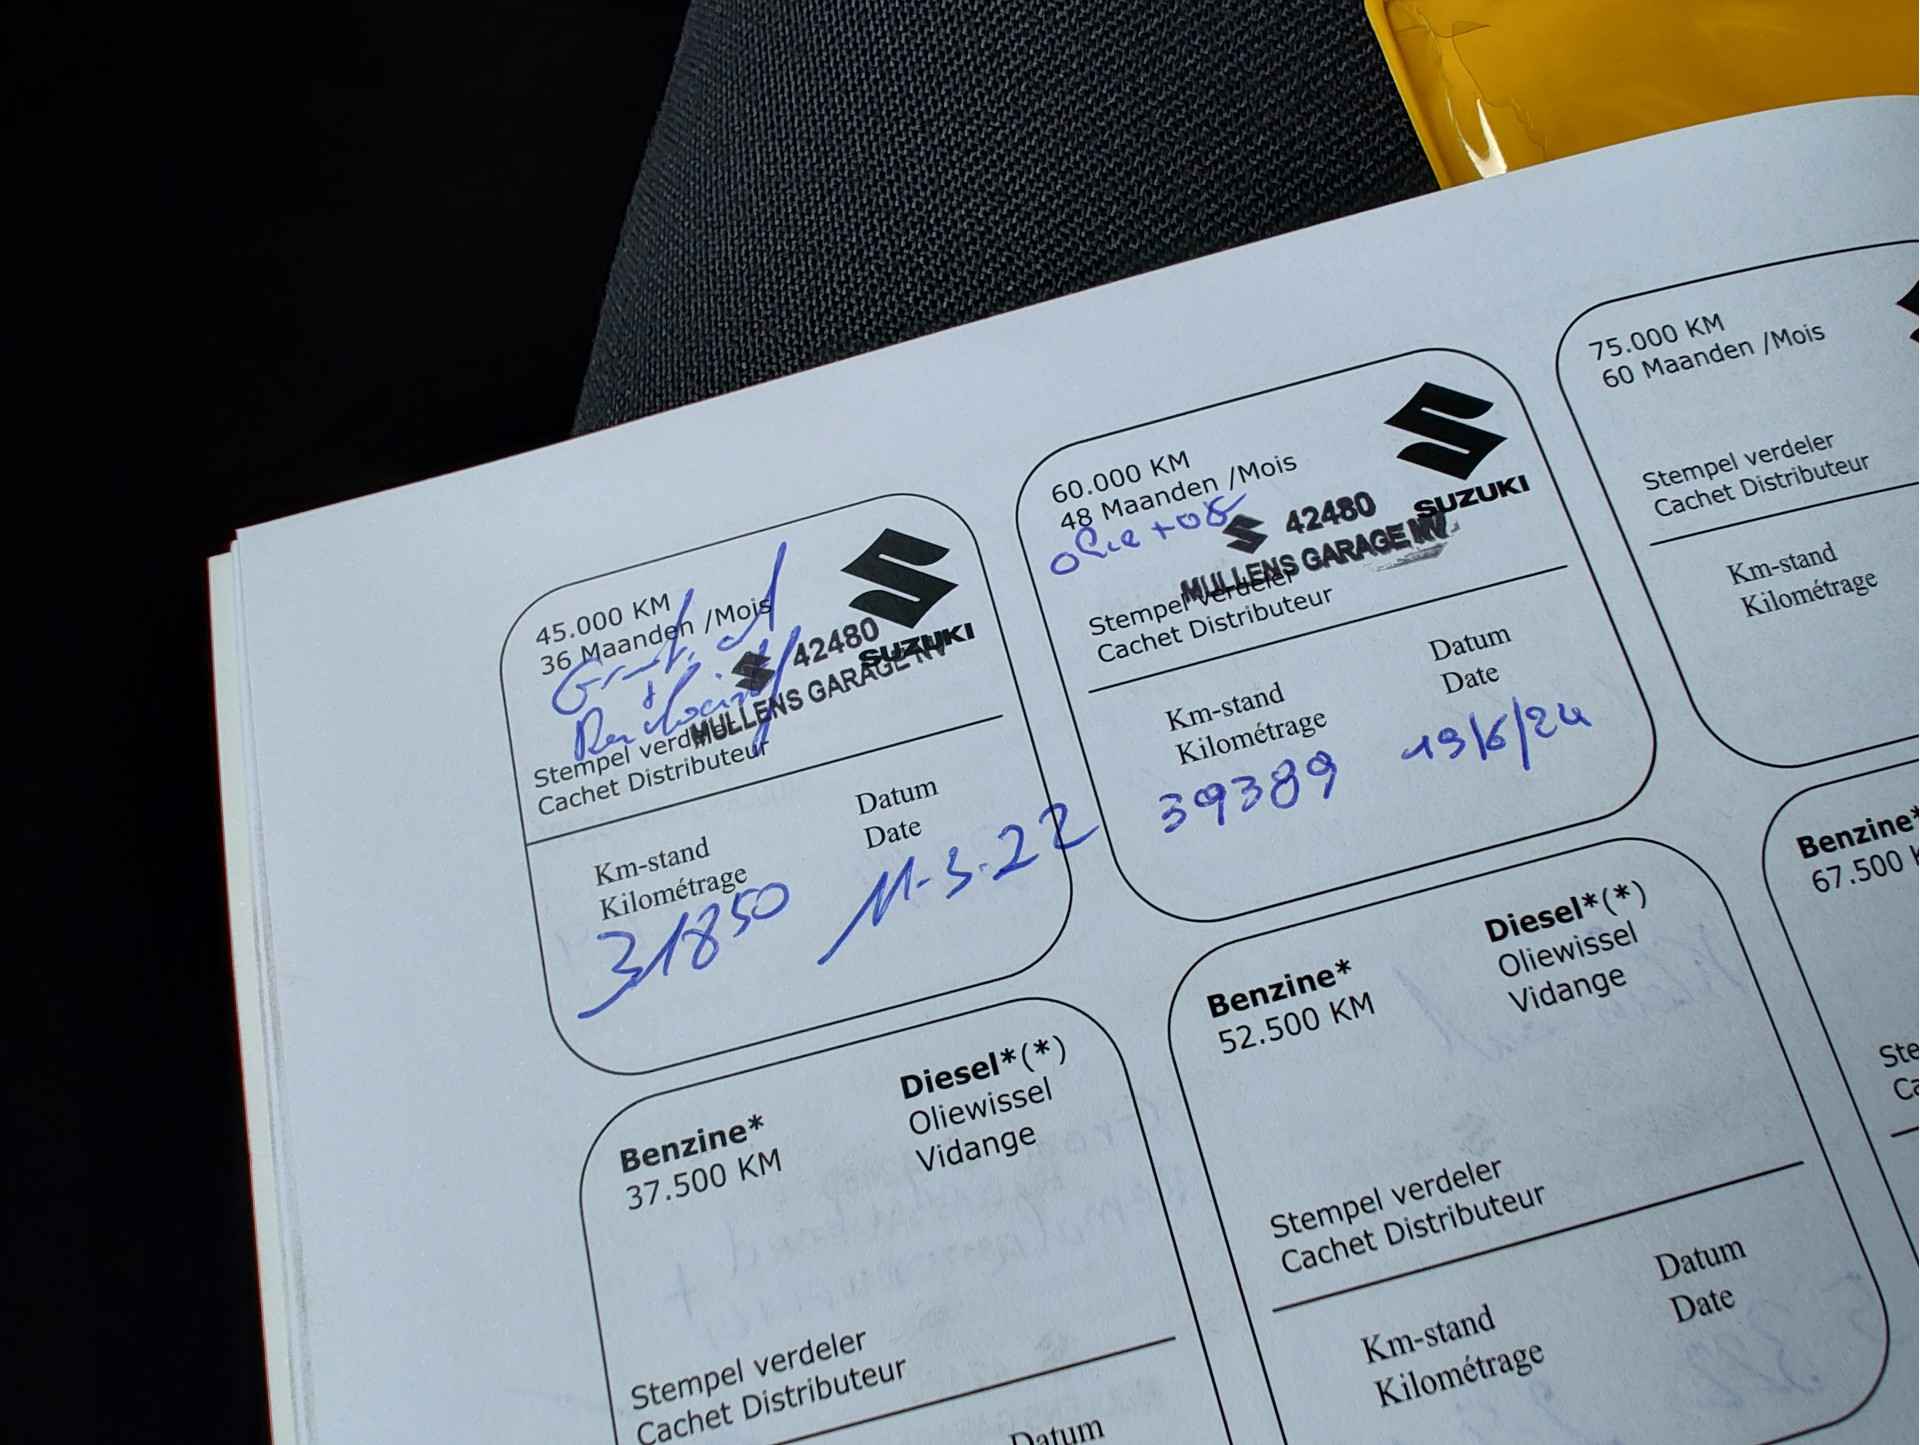 45.000 KM
36 Maanden /Mois
SUZUKI
42480
MULLENS GARAGE NV
Stempel verdeler
Cachet Distributeur
Km-stand
Kilométrage
Datum
Date
31850
11-3-22
60.000 KM
48 Maanden /Mois
SUZUKI
olie + of
42480
MULLENS GARAGE NV
Stempel verdeler
Cachet Distributeur
Km-stand
Kilométrage
Datum
Date
39389
19/6/24
75.000 KM
60 Maanden /Mois
Stempel verdeler
Cachet Distributeur
Km-stand
Kilométrage
Benzine*
37.500 KM
Diesel*(*)
Oliewissel
Vidange
Stempel verdeler
Cachet Distributeur
Datum
Benzine*
52.500 KM
Diesel*(*)
Oliewissel
Vidange
Stempel verdeler
Cachet Distributeur
Km-stand
Kilométrage
Datum
Date
Benzine*
67.500